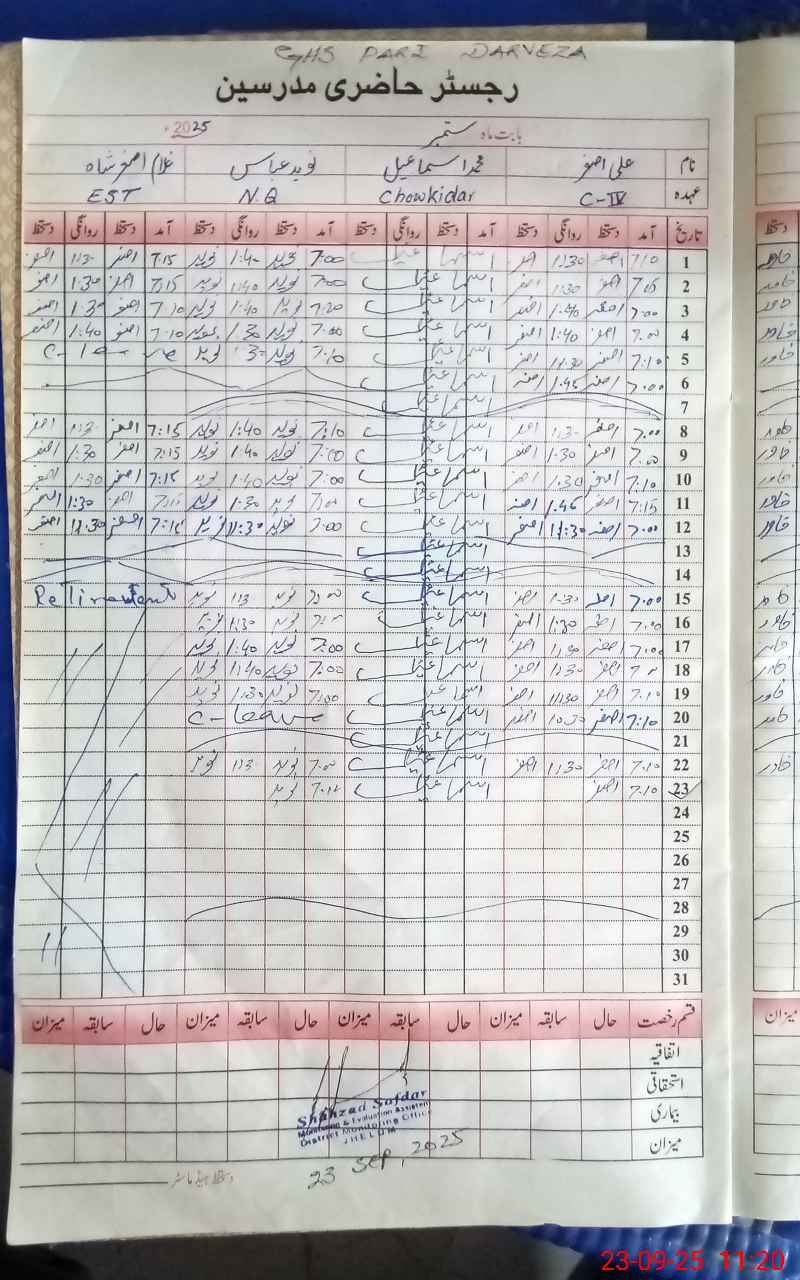 GHS PARI DARVEZA
رجسٹر حاضری مدرسین
بابت ماہ ستمبر 2025ء
نام علی اصغر محمد اسماعیل نوید عباس غلام اصغر شاہ
عہدہ C-IV Chowkidar N.Q EST
تاریخ آمد دستخط روانگی دستخط آمد دستخط روانگی دستخط آمد دستخط روانگی دستخط آمد دستخط روانگی دستخط
1 7:10 اصغر 1:30 اصغر اسماعیل 7:00 نوید 1:40 نوید 7:15 اصغر 1:30 اصغر
2 7:05 اصغر 1:30 اصغر اسماعیل 7:00 نوید 1:40 نوید 7:15 اصغر 1:30 اصغر
3 7:00 اصغر 1:40 اصغر اسماعیل 7:20 نوید 1:40 نوید 7:10 اصغر 1:30 اصغر
4 7:00 اصغر 1:40 اصغر اسماعیل 7:00 نوید 1:30 نوید 7:10 اصغر 1:40 اصغر
5 7:10 اصغر 11:30 اصغر اسماعیل 7:10 نوید نوید C-leave
6 7:00 اصغر 1:45 اصغر اسماعیل
7 اسماعیل
8 7:00 اصغر 1:30 اصغر اسماعیل 7:10 نوید 1:40 نوید 7:15 اصغر 1:30 اصغر
9 7:00 اصغر 1:30 اصغر اسماعیل 7:00 نوید 1:40 نوید 7:15 اصغر 1:30 اصغر
10 7:10 اصغر 1:30 اصغر اسماعیل 7:00 نوید 1:40 نوید 7:15 اصغر 1:30 اصغر
11 7:15 اصغر 1:45 اصغر اسماعیل 7:00 نوید 1:30 نوید اصغر 1:30 اصغر
12 7:00 اصغر 11:30 اصغر اسماعیل 7:00 نوید 11:30 نوید 7:15 اصغر 11:30 اصغر
13 اسماعیل
14 اسماعیل
15 7:00 اصغر 1:30 اصغر اسماعیل 7:00 نوید 1:30 نوید Retirement
16 7:00 اصغر 1:30 اصغر اسماعیل نوید 1:30 نوید
17 7:00 اصغر 1:30 اصغر اسماعیل 7:00 نوید 1:40 نوید
18 اصغر 1:30 اصغر اسماعیل 7:00 نوید 1:40 نوید
19 7:10 اصغر 11:30 اصغر اسماعیل 7:00 نوید نوید
20 7:10 اصغر 10:30 اصغر اسماعیل C-leave
21 اسماعیل
22 7:10 اصغر 1:30 اصغر اسماعیل 7:00 نوید 1:30 نوید
23 7:10 اصغر اسماعیل 7:10 نوید
24
25
26
27
28
29
30
31
قسم رخصت حال سابقہ میزان حال سابقہ میزان حال سابقہ میزان حال سابقہ میزان
اتفاقیہ
استحقاقی
بیماری
میزان
Shahzad Safdar
Monitoring & Evaluation Assistant
District Monitoring Office
JHELUM
23 Sep, 2025
دستخط ہیڈ ماسٹر
23-09-25 11:20